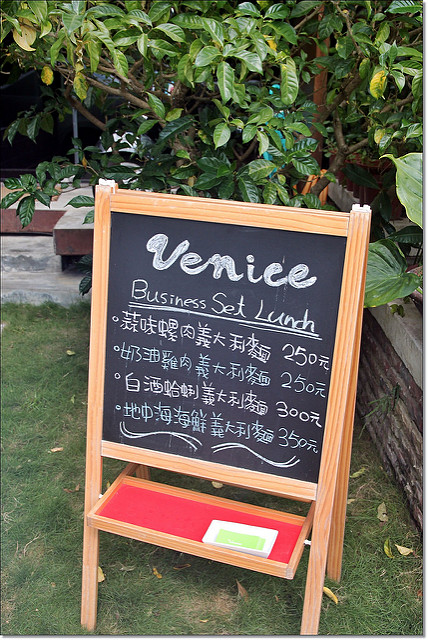 Venice
Business Set Lunch
°蒜味螺肉義大利麵 250元
°奶油雞肉義大利麵 250元
°白酒蛤蜊義大利麵 300元
°地中海海鮮義大利麵 350元